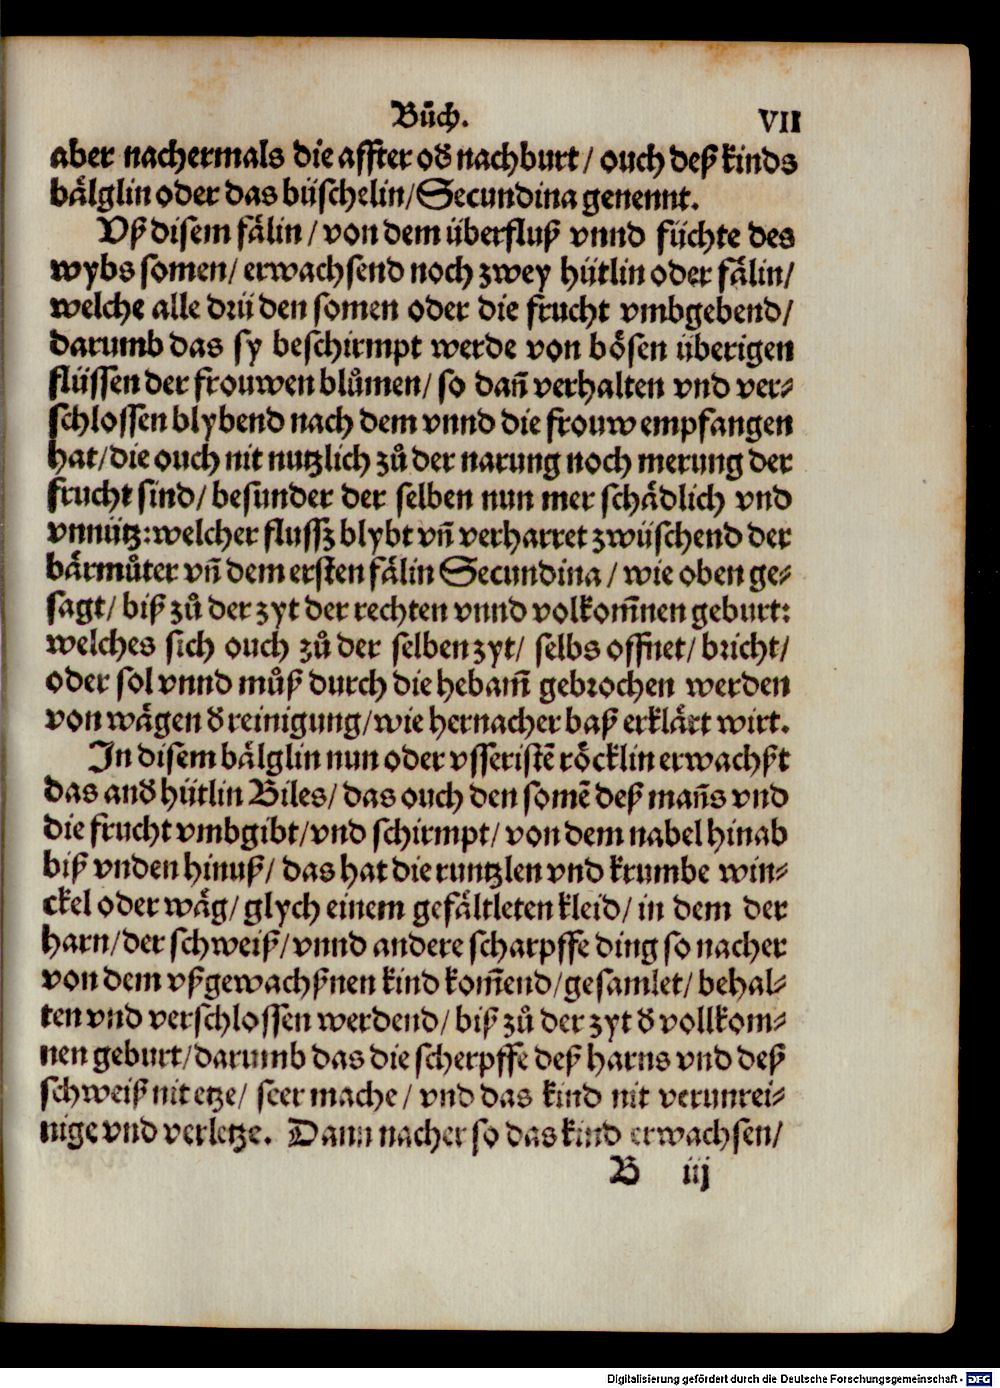 Bůch. VII
aber nachermals die affter oď nachburt / ouch deß kinds
bälglin oder das büschelin/Secundina genennt.
Vß disem fälin / von dem überfluß vnnd füchte des
wybs somen/ erwachsend noch zwey hütlin oder fälin/
welche alle drü den somen oder die frucht vmbgebend/
darumb das sy beschirmpt werde von bösen überigen
flüssen der frouwen blůmen/ so dañ verhalten vnd ver⸗
schlossen blybend nach dem vnnd die frouw empfangen
hat/die ouch nit nutzlich zů der narung noch merung der
frucht sind/ besunder der selben nun mer schädlich vnd
vnnütz:welcher flussz blybt vñ verharret zwüschend der
bärmůter vñ dem ersten fälin Secundina / wie oben ge⸗
sagt/ biß zů der zyt der rechten vnnd volkom̃nen geburt:
welches sich ouch zů der selben zyt/ selbs offnet/ bricht/
oder sol vnnd můß durch die hebam̃ gebrochen werden
von wägen ď reinigung/wie hernacher baß erklärt wirt.
In disem bälglin nun oder vsseristẽ röcklin erwachßt
das anď hütlin Biles/ das ouch den somẽ deß mañs vnd
die frucht vmbgibt/vnd schirmpt/ von dem nabel hinab
biß vnden hinuß/ das hat die runtzlen vnd krumbe win⸗
ckel oder wäg/ glych einem gefältleten kleid/ in dem der
harn/der schweiß/vnnd andere scharpffe ding so nacher
von dem vßgewachßnen kind kom̃end/gesamlet/ behal⸗
ten vnd verschlossen werdend/ biß zů der zyt ď vollkom⸗
nen geburt/darumb das die scherpffe deß harns vnd deß
schweiß nit etze/ seer mache / vnd das kind nit verunrei⸗
nige vnd verletze. Dann nacher so das kind erwachsen/
B iij
Digitalisierung gefördert durch die Deutsche Forschungsgemeinschaft - DFG